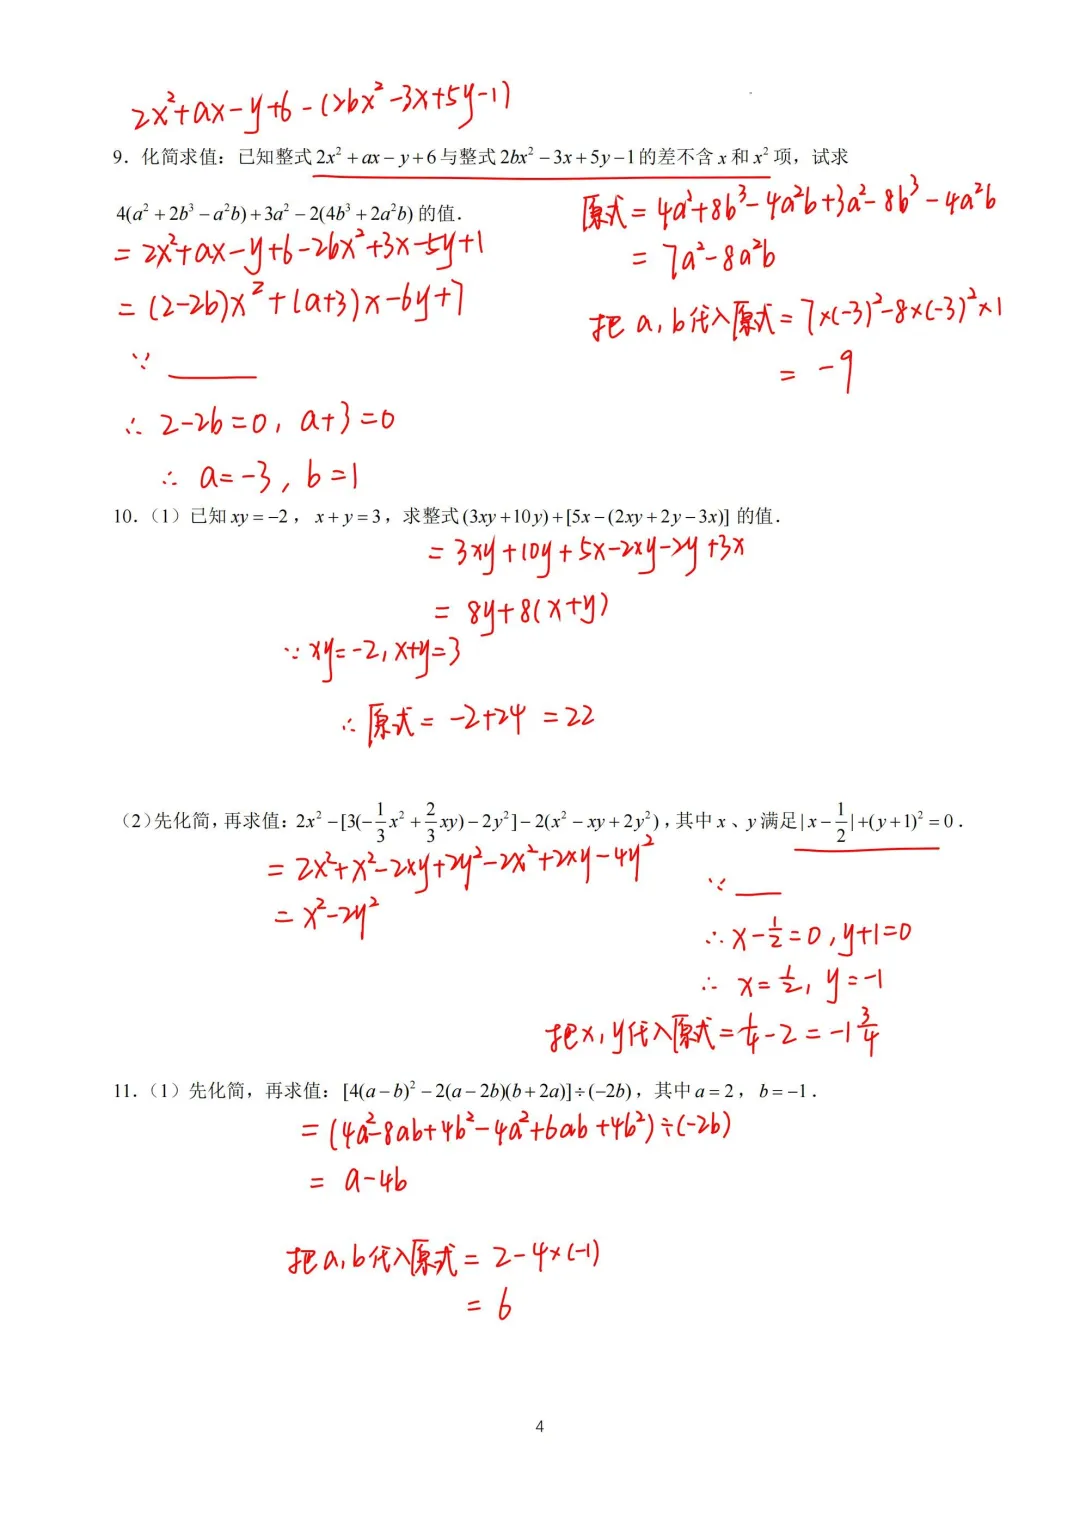 2x²+ax-y+6-(2bx²-3x+5y-1)
9．化简求值：已知整式 2x²+ax-y+6 与整式 2bx²-3x+5y-1 的差不含 x 和 x² 项，试求
4(a²+2b³-a²b)+3a²-2(4b³+2a²b) 的值．
= 2x²+ax-y+6-2bx²+3x-5y+1
= (2-2b)x²+(a+3)x-6y+7
∵ ____
∴ 2-2b=0, a+3=0
∴ a=-3, b=1
原式= 4a²+8b³-4a²b+3a²-8b³-4a²b
= 7a²-8a²b
把 a, b代入原式= 7×(-3)²-8×(-3)²×1
= -9
10．（1）已知 xy=-2，x+y=3，求整式 (3xy+10y)+[5x-(2xy+2y-3x)] 的值．
= 3xy+10y+5x-2xy-2y+3x
= 8y+8(x+y)
∵ xy=-2, x+y=3
∴ 原式= -2+24 =22
（2）先化简，再求值：2x²-[3(-1/3x²+2/3xy)-2y²]-2(x²-xy+2y²)，其中 x 、y 满足|x-1/2|+(y+1)²=0．
= 2x²+x²-2xy+2y²-2x²+2xy-4y²
= x²-2y²
∵ ____
∴ x-1/2=0, y+1=0
∴ x=1/2, y=-1
把x, y代入原式= 1/4-2 = -1 3/4
11．（1）先化简，再求值：[4(a-b)²-2(a-2b)(b+2a)]÷(-2b)，其中 a=2，b=-1．
= (4a²-8ab+4b²-4a²+6ab+4b²)÷(-2b)
= a-4b
把a, b代入原式= 2-4×(-1)
= 6
4